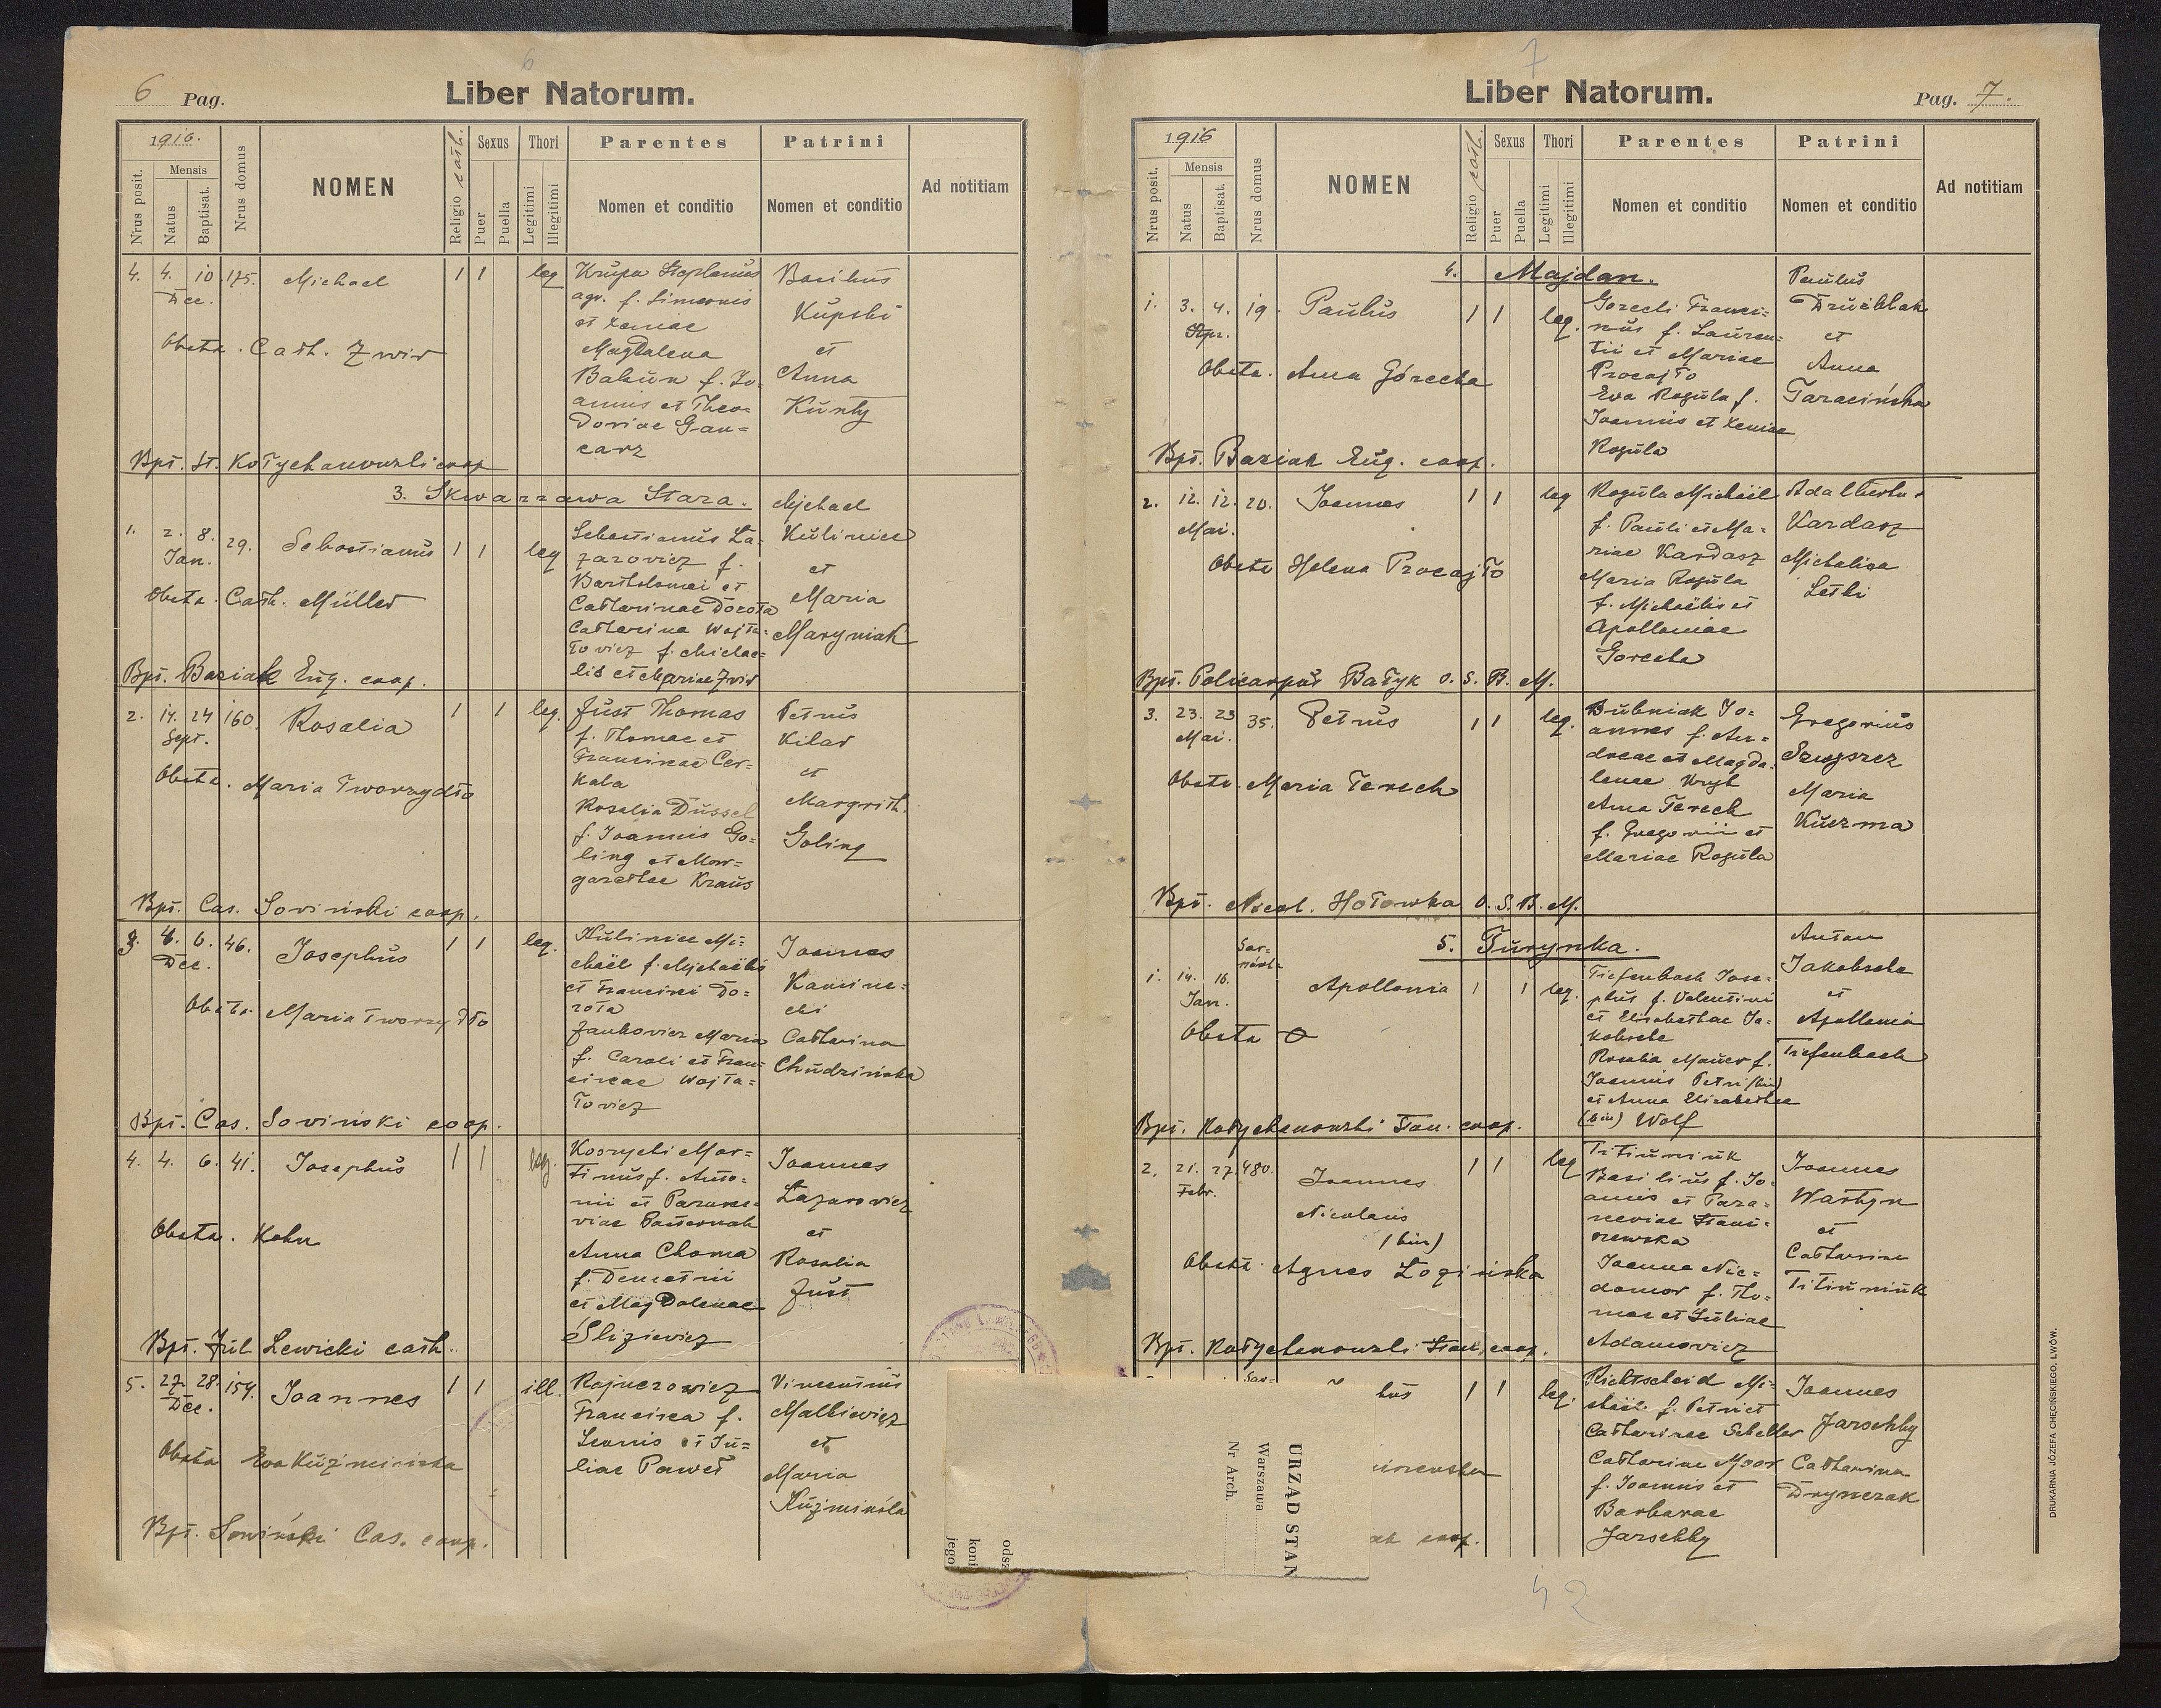 6 Pag.
6
Liber Natorum.
1916.
Nrus posit.
Mensis
Natus
Baptisat.
Nrus domus
NOMEN
Religio cath.
Sexus
Puer
Puella
Thori
Legitimi
Illegitimi
Parentes
Nomen et conditio
Patrini
Nomen et conditio
Ad notitiam
4. 4. 10. 175. Michael 1 1 leg
Dec.
Obstet. Cath. Zwir
Krupa Stephanus
agr. f. Simeonis
et Xeniae
Magdalena
Bakun f. Jo-
annis et Theo-
doriae Gan=
carz
Basilius
Kupski
et
Anna
Kunty
Bpt. St. Kołychanowski coop
3. Skwarzawa Stara.
1. 2. 8. 29. Sebastianus 1 1 leg
Jan.
Obstet. Cath. Müller
Sebastianus Ła-
zarowicz f.
Bartholomei et
Catharinae Dorota
Catharina Wojta-
towicz f. Michae=
lis et Mariae Zwir
Michael
Kulinicz
et
Maria
Maryniak
Bpt. Baziak Eug. coop.
2. 14. 24 160. Rosalia 1 1 leg.
Sept.
Obstet. Maria Tworzydło
Just Thomas
f. Thomae et
Franciscae Cer-
kala
Rosalia Dussel
f. Joannis Go-
ling et Mar=
garethae Kraus
Petrus
Kilar
et
Margrith.
Goling
Bpt. Cas. Sowinski coop.
3. 4. 6. 46. Josephus 1 1 leg.
Dec.
Obstet. Maria Tworzydło
Kulinicz Mi-
chaël f. Michaëlis
et Francisci Do-
rota
Jankowicz Maria
f. Caroli et Fran-
ciscae Wojta=
towicz
Joannes
Kamine=
cki
Catharina
Chudzinska
Bpt. Cas. Sowinski coop.
4. 4. 6. 41. Josephus 1 1 leg.
Obstet. Kohn
Kosrycki Mar=
tinus f. Anto-
nii et Parasce-
viae Pasternak
Anna Choma
f. Demetrii
et Magdalenae
Śliziewicz
Joannes
Łazarowicz
et
Rosalia
Just
Bpt. Jul Lewicki cath.
5. 27. 28. 159. Joannes 1 1 ill.
Dec.
Obstet. Eva Kuzminska
Rajnerowicz
Francisca f.
Leonis et Ju=
liae Paweł
Vincentius
Malkiewicz
et
Maria
Kuźminska
Bpt. Sowiński Cas. coop.
7
Liber Natorum.
Pag. 7.
1916
Nrus posit.
Mensis
Natus
Baptisat.
Nrus domus
NOMEN
Religio cath.
Sexus
Puer
Puella
Thori
Legitimi
Illegitimi
Parentes
Nomen et conditio
Patrini
Nomen et conditio
Ad notitiam
4. Majdan.
1. 3. 4. 19. Paulus 1 1 leg.
Apr.
Obstet. Anna Górecka
Gorecki Franci-
scus f. Lauren-
tii et Mariae
Procajło
Eva Rogula f.
Joannis et Xeniae
Rogula
Paulus
Druchlak
et
Anna
Taracińska
Bpt. Baziak Eug. coop.
2. 12. 12. 20. Joannes 1 1 leg
Mai.
Obstet Helena Procajło
Rogula Michaël
f. Pauli et Ma-
riae Kardasz
Maria Rogula
f. Michaëlis et
Apolloniae
Gorecka
Adalbertus
Kardasz
Michalina
Letki
Bpt. Policarpus Bałyk O. S. B. M.
3. 23. 23 35. Petrus 1 1 leg.
Mai.
Obstet. Maria Terech
Bubniak Jo-
annes f. An-
dreae et Magda-
lenae Kryk
Anna Terech
f. Gregorii et
Mariae Rogula
Gregorius
Szwyszcz
Maria
Kuczma
Bpt. Nicol. Hołowka O. S. B. M.
5. Turynka.
1. 14. 16. Apollonia 1 1 leg.
Jan.
Obstet
Tiefenbach Jose-
phus f. Valentini
et Elisabethae Ja-
kobsche
Rosalia Mauer f.
Joannis Petri (bin)
et Anna Elisabethae
(bin) Wolf
Anton
Jakobsche
et
Apollonia
Tiefenbach
Bpt. Kołychanowski Stan. coop.
2. 21. 27. 480. Joannes 1 1 leg
Febr.
Nicolaus
(bin)
Obstet. Agnes Łogińska
Tituniuk
Basilius f. Jo-
annis et Para-
sceviae Stani-
szewska
Joanna Nie-
domor f. Tho-
mae et Juliae
Adamowicz
Joannes
Wartyn
et
Catharina
Tituniuk
Bpt. Kołychanowski Stan. coop.
1 1 leg.
Richtscheid Mi-
chaël f. Petri et
Catharinae Scheller
Catharina Moor
f. Joannis et
Barbarae
Jarschky
Joannes
Jarschky
Catharina
Drynczak
coop.
URZĄD STAN
Warszawa
Nr Arch.
odsz
koni
jego
42
DRUKARNIA JÓZEFA CHĘCIŃSKIEGO, LWÓW.